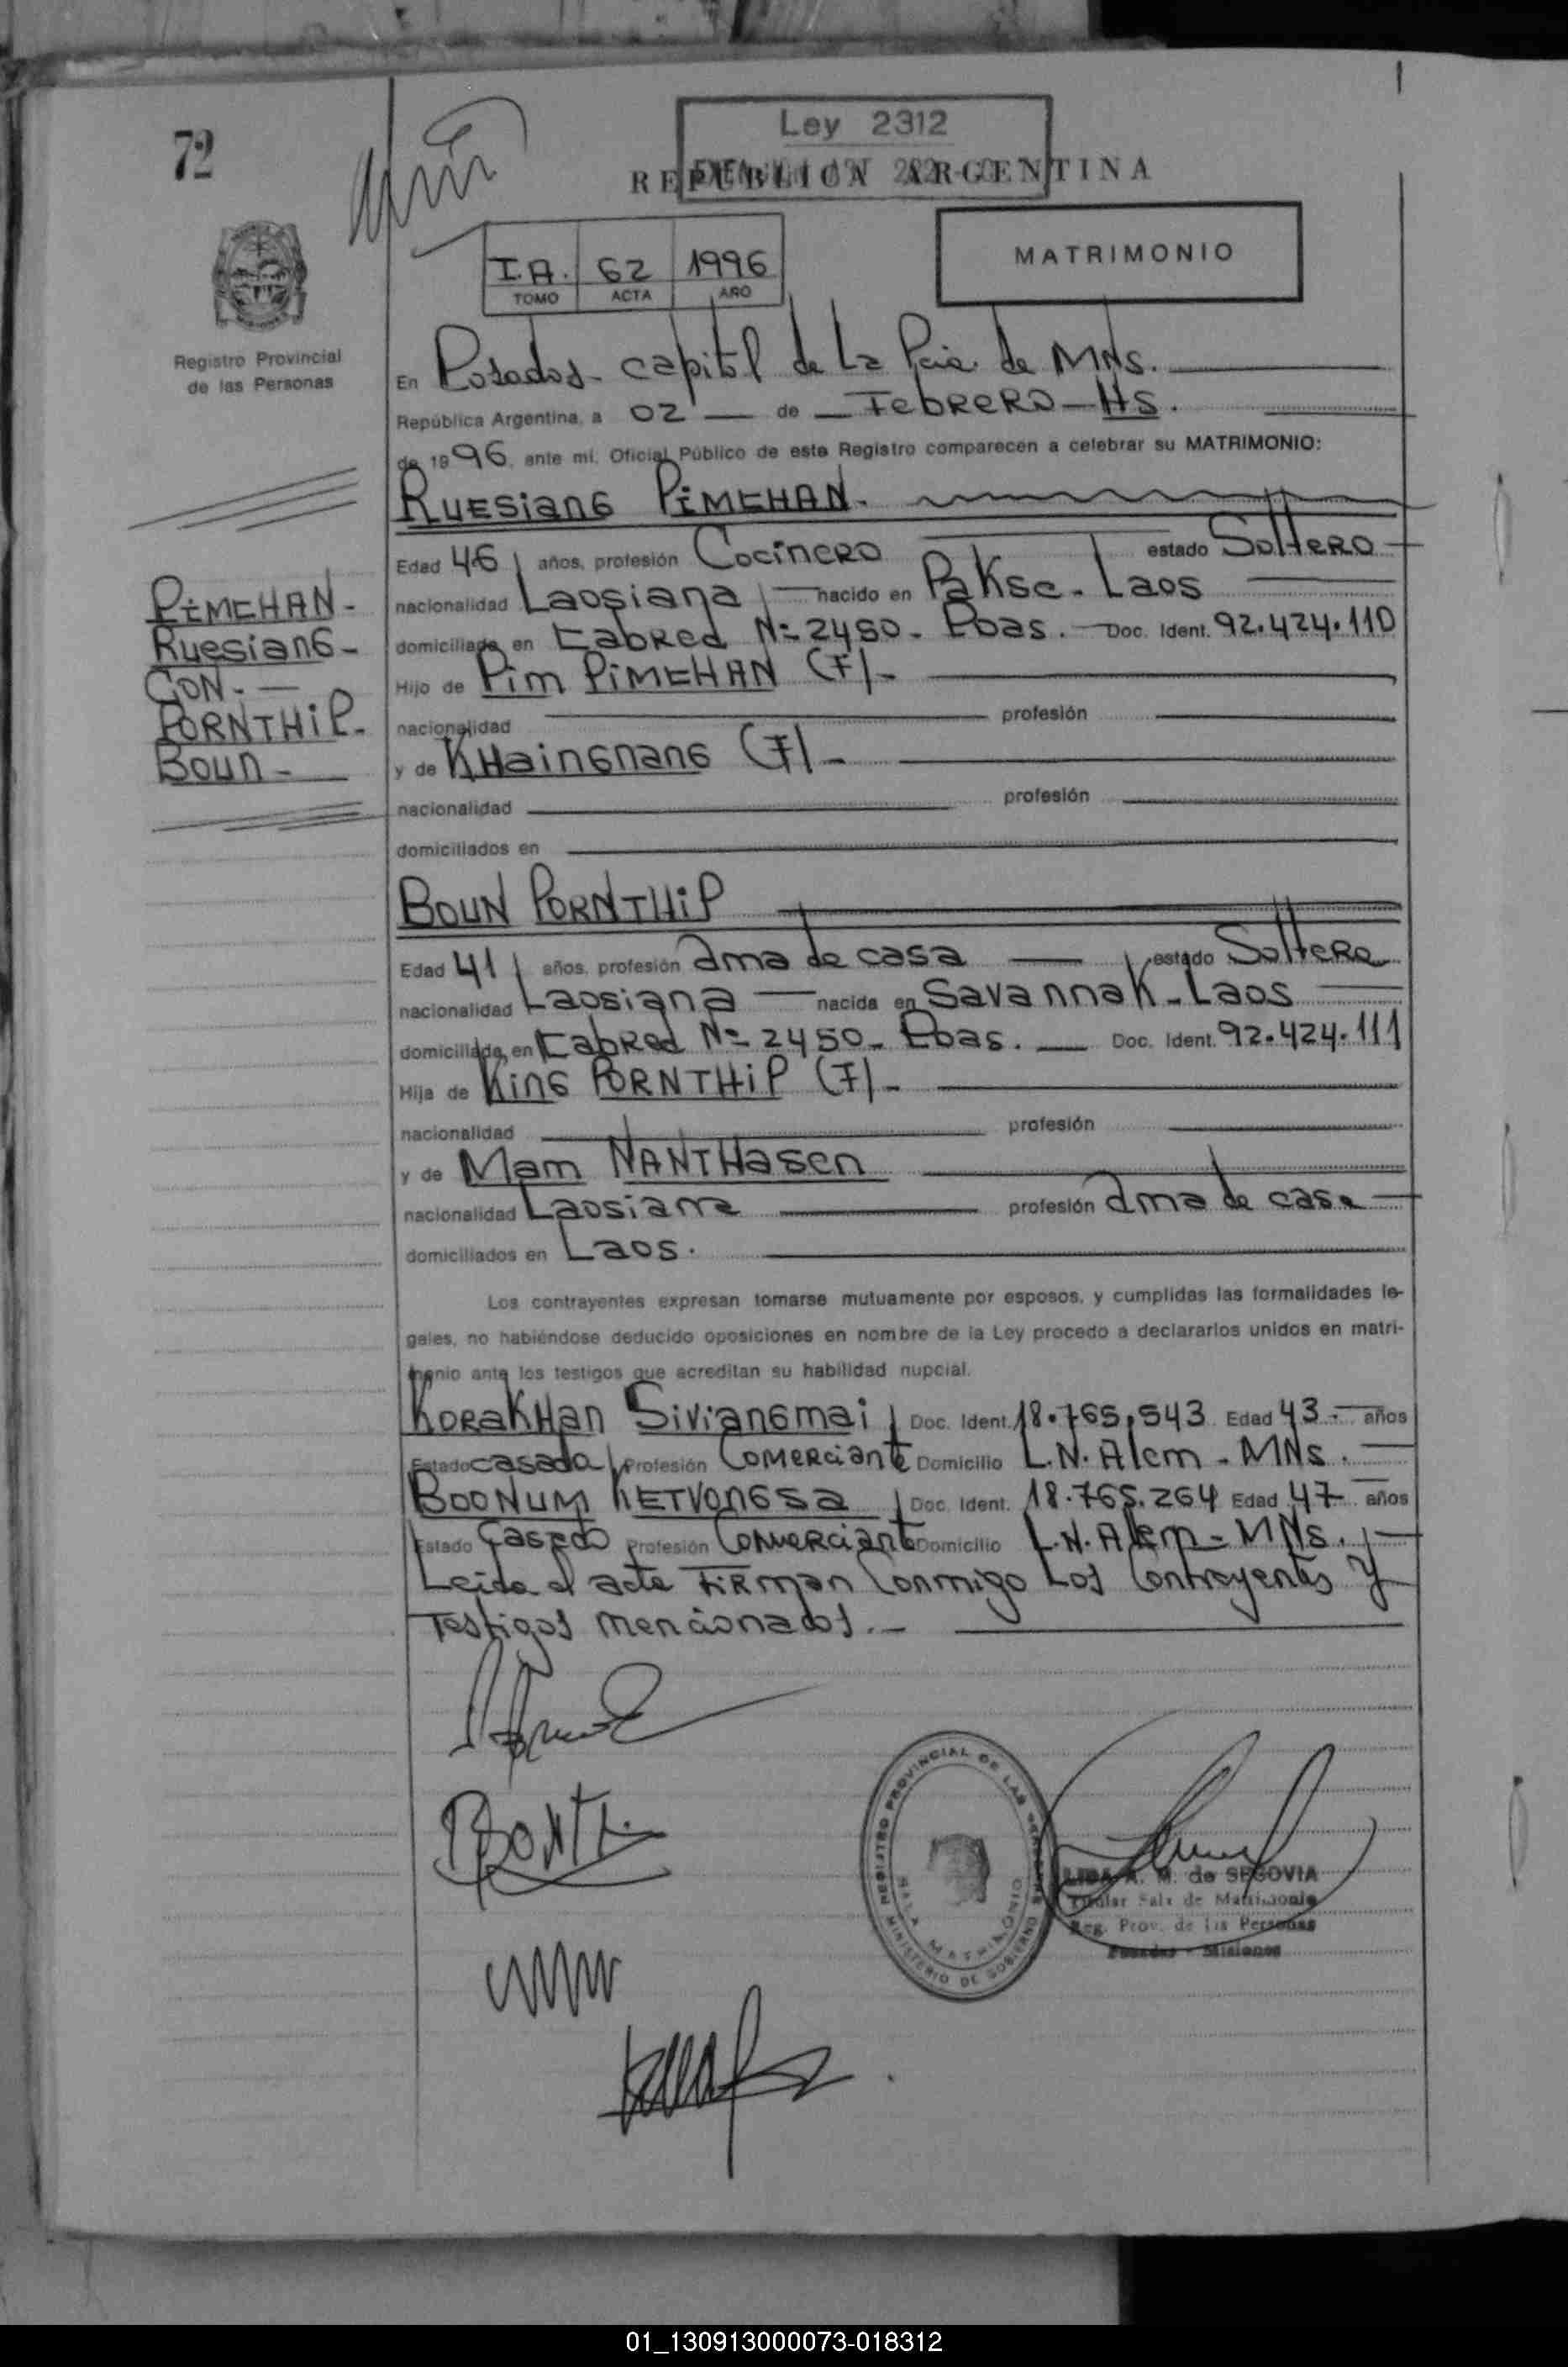 72
Ley 2312
REPUBLICA ARGENTINA
I.A. 62 1996
TOMO ACTA AÑO
MATRIMONIO
Registro Provincial
de las Personas
En Posadas - capital de La Pcia. de MNs.
República Argentina, a 02 de Febrero - HS.
de 1996, ante mí, Oficial Público de este Registro comparecen a celebrar su MATRIMONIO:
RUESIANG PIMEHAN.
Edad 46 años, profesión Cocinero estado Soltero
nacionalidad Laosiana nacido en Pakse - Laos
domiciliado en Cabred Nº 2450 - Pdas. Doc. Ident. 92.424.110
Hijo de Pim PIMEHAN (F) -
nacionalidad profesión
y de KHaingnang (F) -
nacionalidad profesión
domiciliados en
PIMEHAN -
Ruesiang -
CON. -
PORNTHIP -
Boun -
BOUN PORNTHIP
Edad 41 años, profesión ama de casa estado Soltera
nacionalidad Laosiana nacida en Savannak - Laos
domiciliada en Cabred Nº 2450 - Pdas. Doc. Ident. 92.424.111
Hija de King PORNTHIP (F) -
nacionalidad profesión
y de Mam NANTHasen
nacionalidad Laosiana profesión ama de casa
domiciliados en Laos.
Los contrayentes expresan tomarse mutuamente por esposos, y cumplidas las formalidades le-
gales, no habiéndose deducido oposiciones en nombre de la Ley procedo a declararlos unidos en matri-
monio ante los testigos que acreditan su habilidad nupcial.
KoraKHan Siviangmai Doc. Ident. 18.765.543 Edad 43 - años
Estado casada Profesión Comerciante Domicilio L.N. Alem - MNs.
BOONUM KETVONGSA Doc. Ident. 18.765.264 Edad 47 años
Estado Casado Profesión Comerciante Domicilio L.N. Alem - MNs.
Leida el acta Firman Conmigo Los Contrayentes y
Testigos mencionados. -
REGISTRO PROVINCIAL DE LAS PERSONAS
SALA MATRIMONIO
MINISTERIO DE GOBIERNO
LIDA A. M. de SEGOVIA
Titular Sala de Matrimonio
Reg. Prov. de las Personas
Posadas - Misiones
01_130913000073-018312